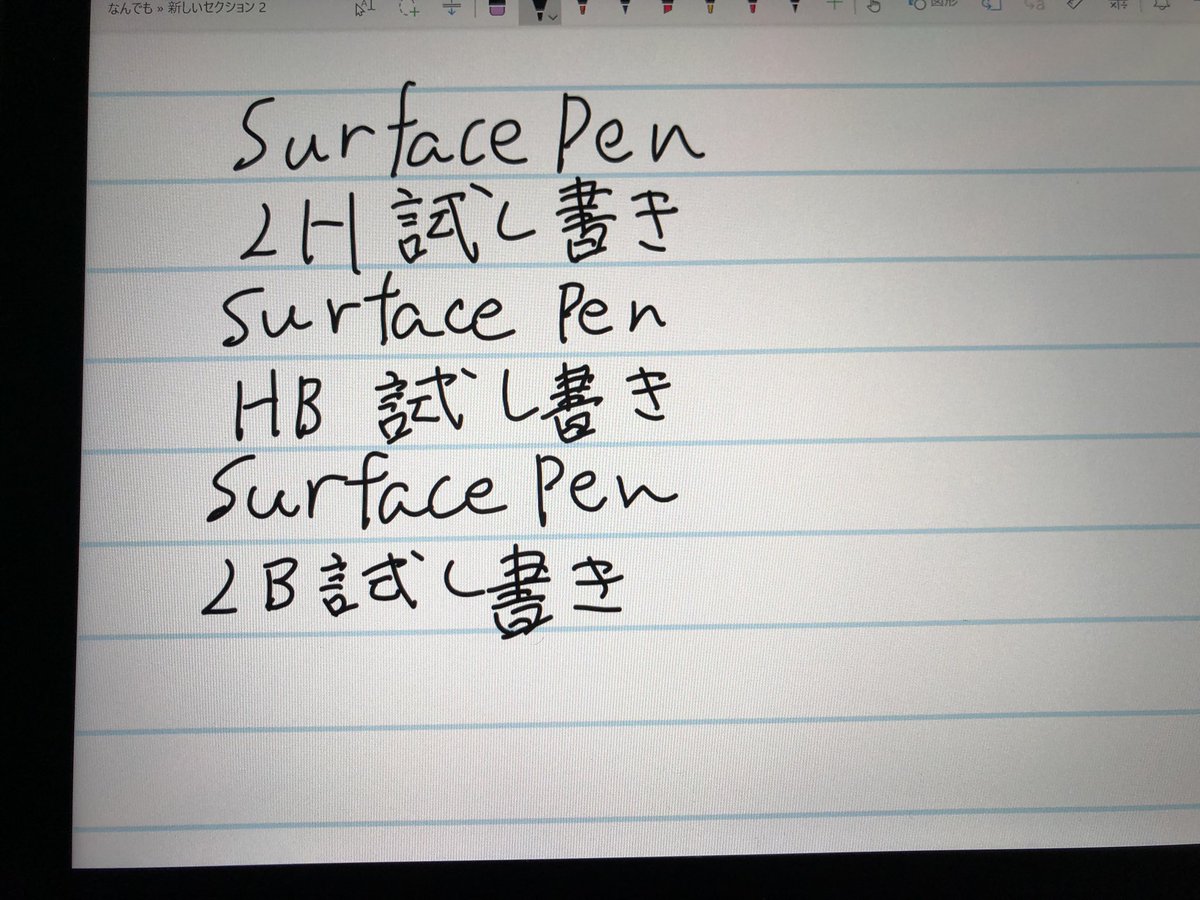 なんでも » 新しいセクション 2
図形
Surface Pen
2H 試し書き
Surface Pen
HB 試し書き
Surface Pen
2B 試し書き